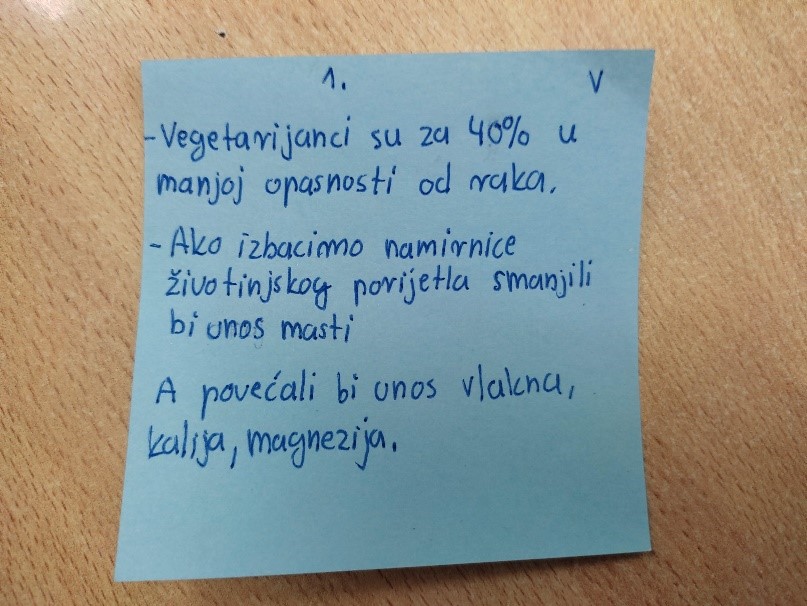 1. V
-Vegetarijanci su za 40% u
manjoj opasnosti od raka.
-Ako izbacimo namirnice
životinjskog porijetla smanjili
bi unos masti
A povećali bi unos vlakna,
kalija, magnezija.